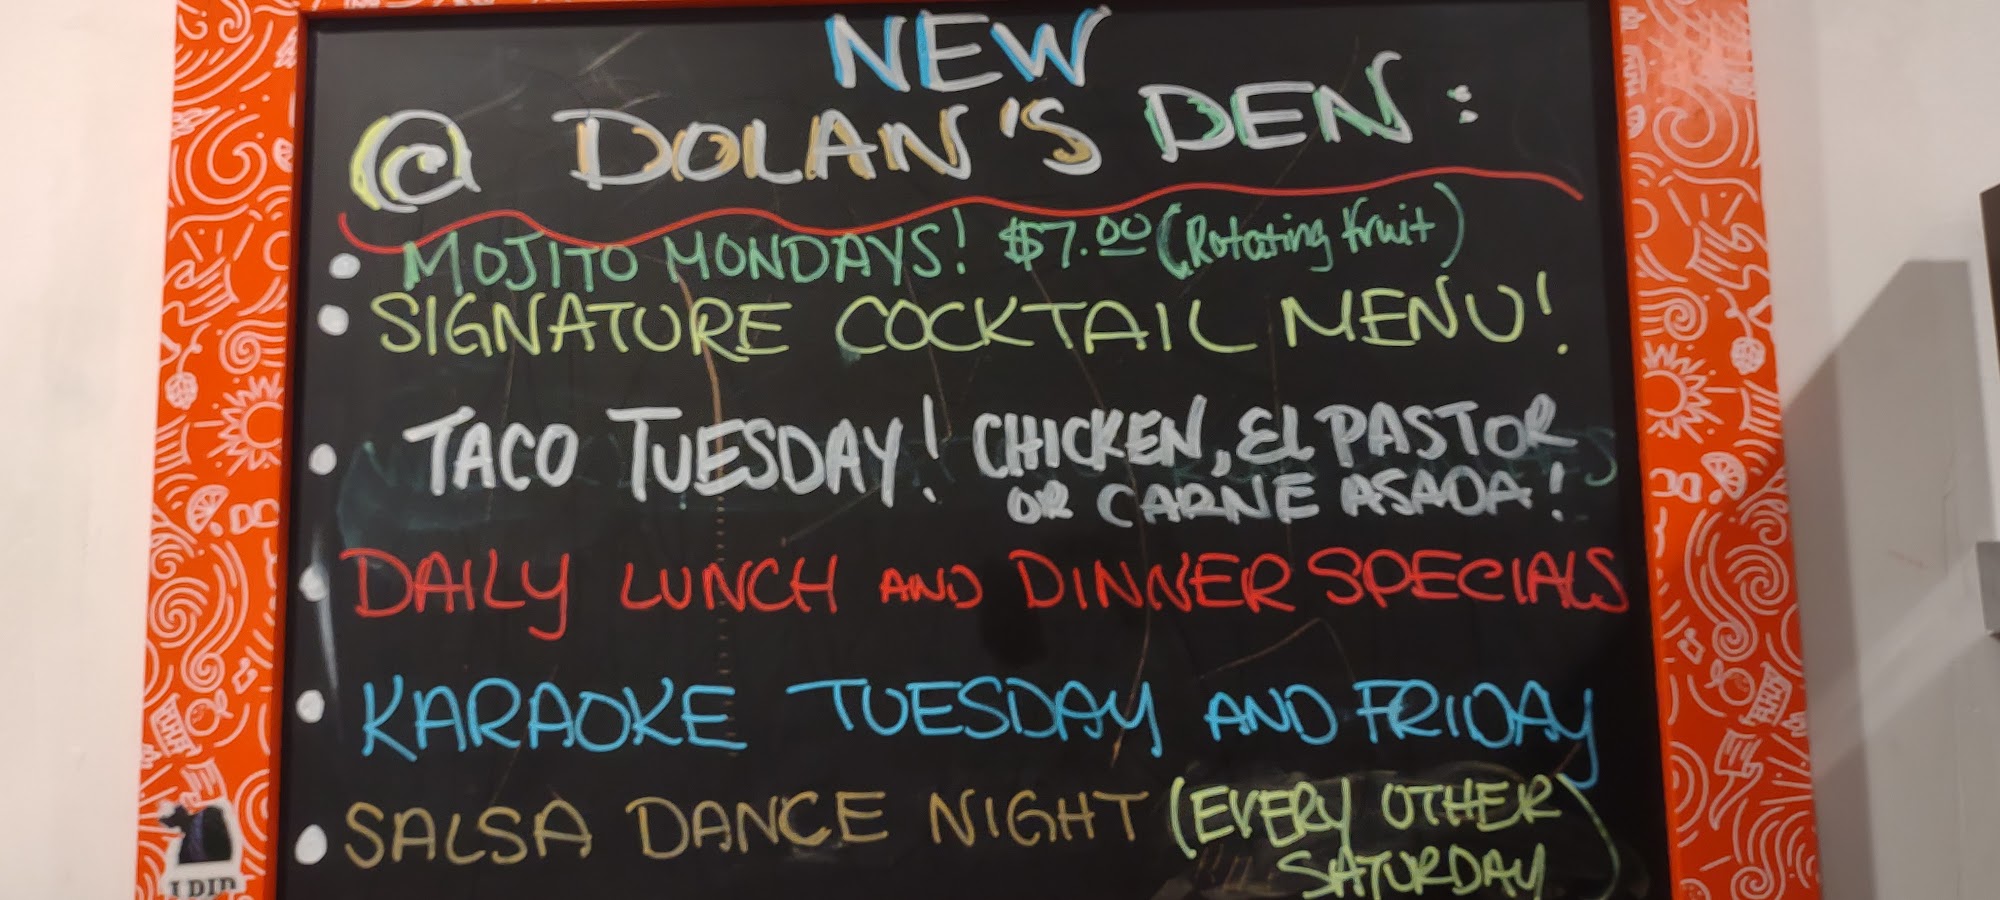 NEW
@ DOLAN'S DEN:
• MOJITO MONDAYS! $7.00 (Rotating fruit)
• SIGNATURE COCKTAIL MENU!
• TACO TUESDAY! CHICKEN, El PASTOR
OR CARNE ASADA!
• DAILY LUNCH AND DINNER SPECIALS
• KARAOKE TUESDAY AND FRIDAY
• SALSA DANCE NIGHT (EVERY OTHER
SATURDAY)
I DID